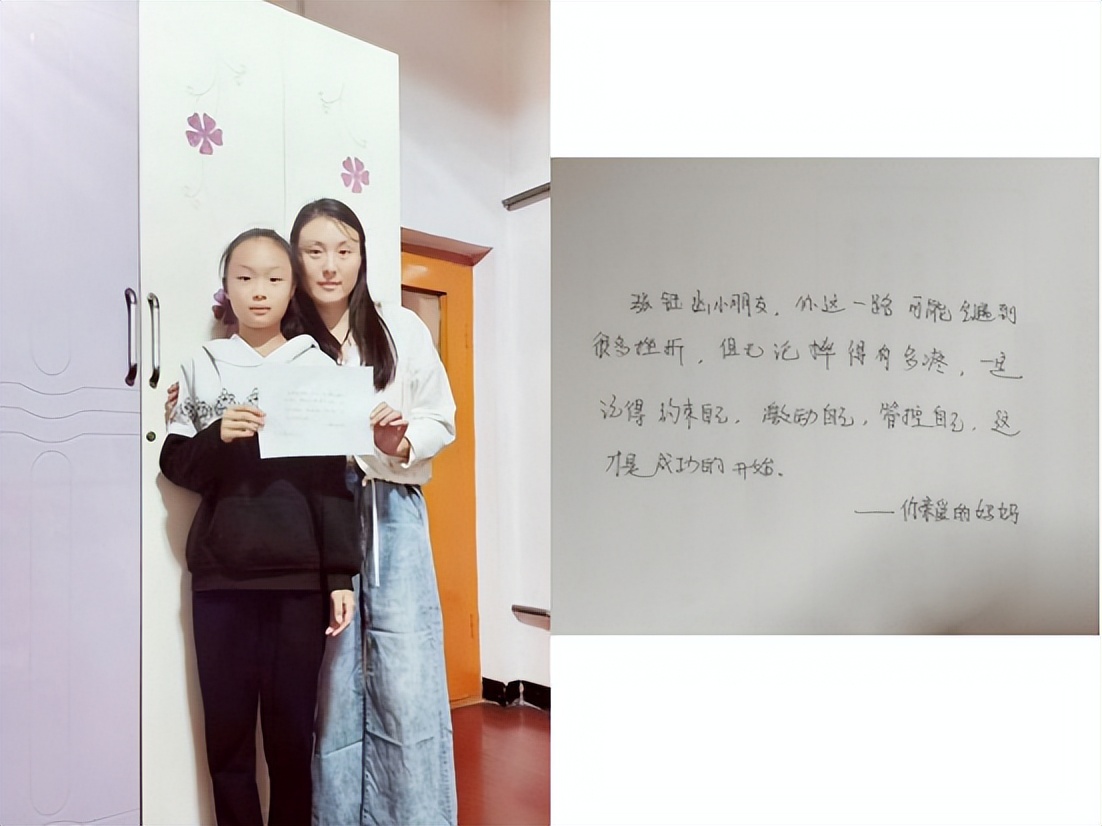 张钰出小朋友，你这一路可能会遇到
很多挫折，但忘记摔得有多疼，一定
记得约束自己，激励自己，管控自己，这
才是成功的开始。
——你亲爱的妈妈